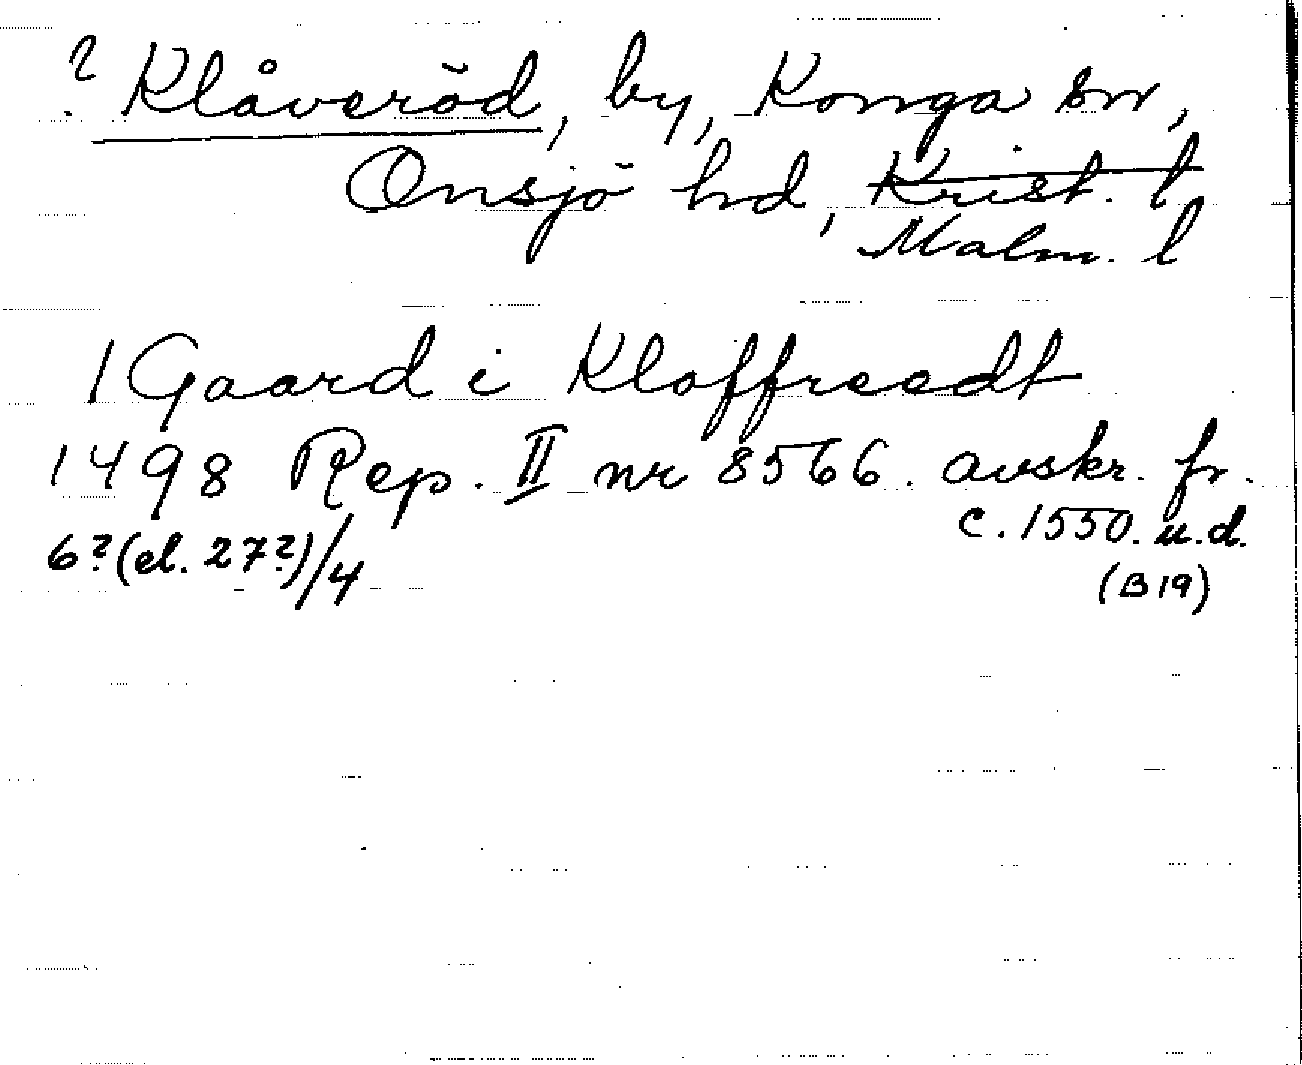 ? Klåveröd, by, Konga sn,
Onsjö hd, Krist. l
Malm. l
1 Gaard i Kloffreedt
1498 Rep. II nr 8566. avskr. fr.
6?(el. 27?)/4 c. 1550. u.d.
(B19)